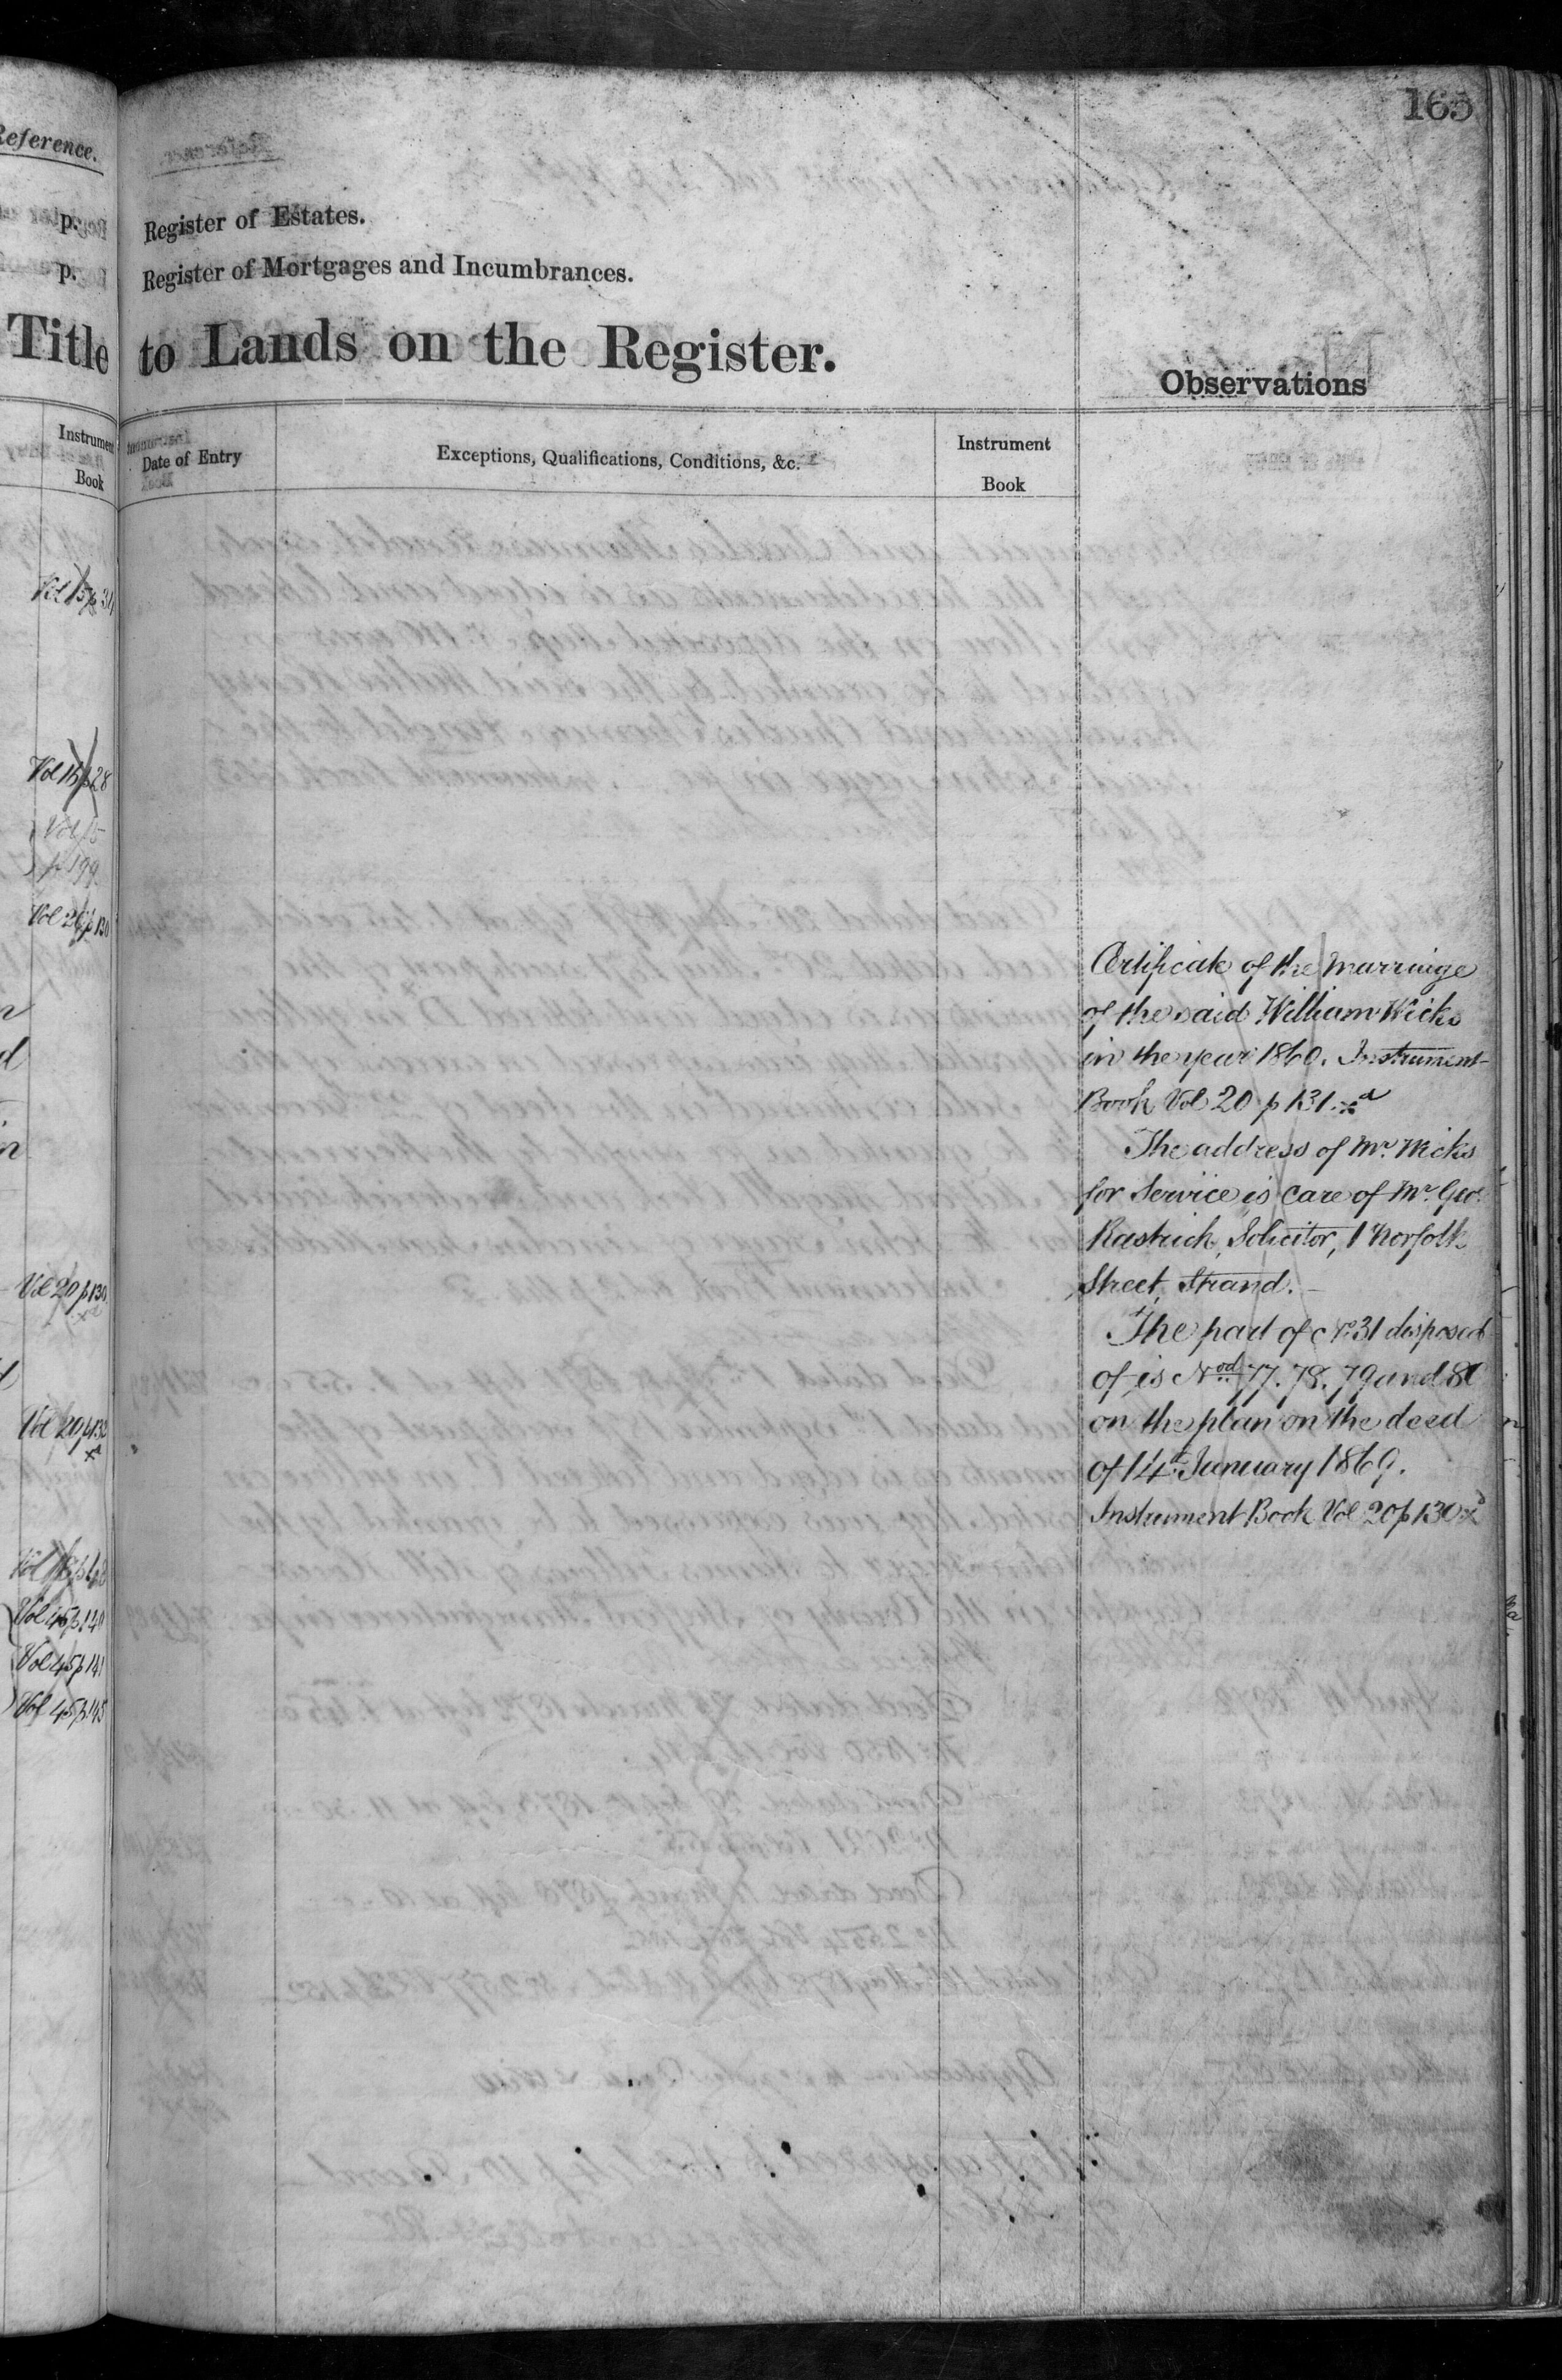 165
Reference.
p.
p.
Title
Instrument
Book
Vol 15 p 28
Vol 15
p 199
Vol 20 p 130
Vol 20 p 130
Vol 20 p 132
Vol 45 p 140
Vol 45 p 141
Vol 45 p 145
Register of Estates.
Register of Mortgages and Incumbrances.
to Lands on the Register.
Observations
Date of Entry
Exceptions, Qualifications, Conditions, &c.
Instrument
Book
Certificate of the marriage
of the said William Wicks
in the year 1860. Instrument
Book Vol 20 p 131. xd
The address of Mr. Wicks
for Service is care of Mr. Geo.
Rastrick, Solicitor, 1 Norfolk
Street, Strand.
The part of No. 31 disposed
of is Nod 77. 78. 79 and 80
on the plan on the deed
of 14th January 1869.
Instrument Book Vol 20 p 130 xd